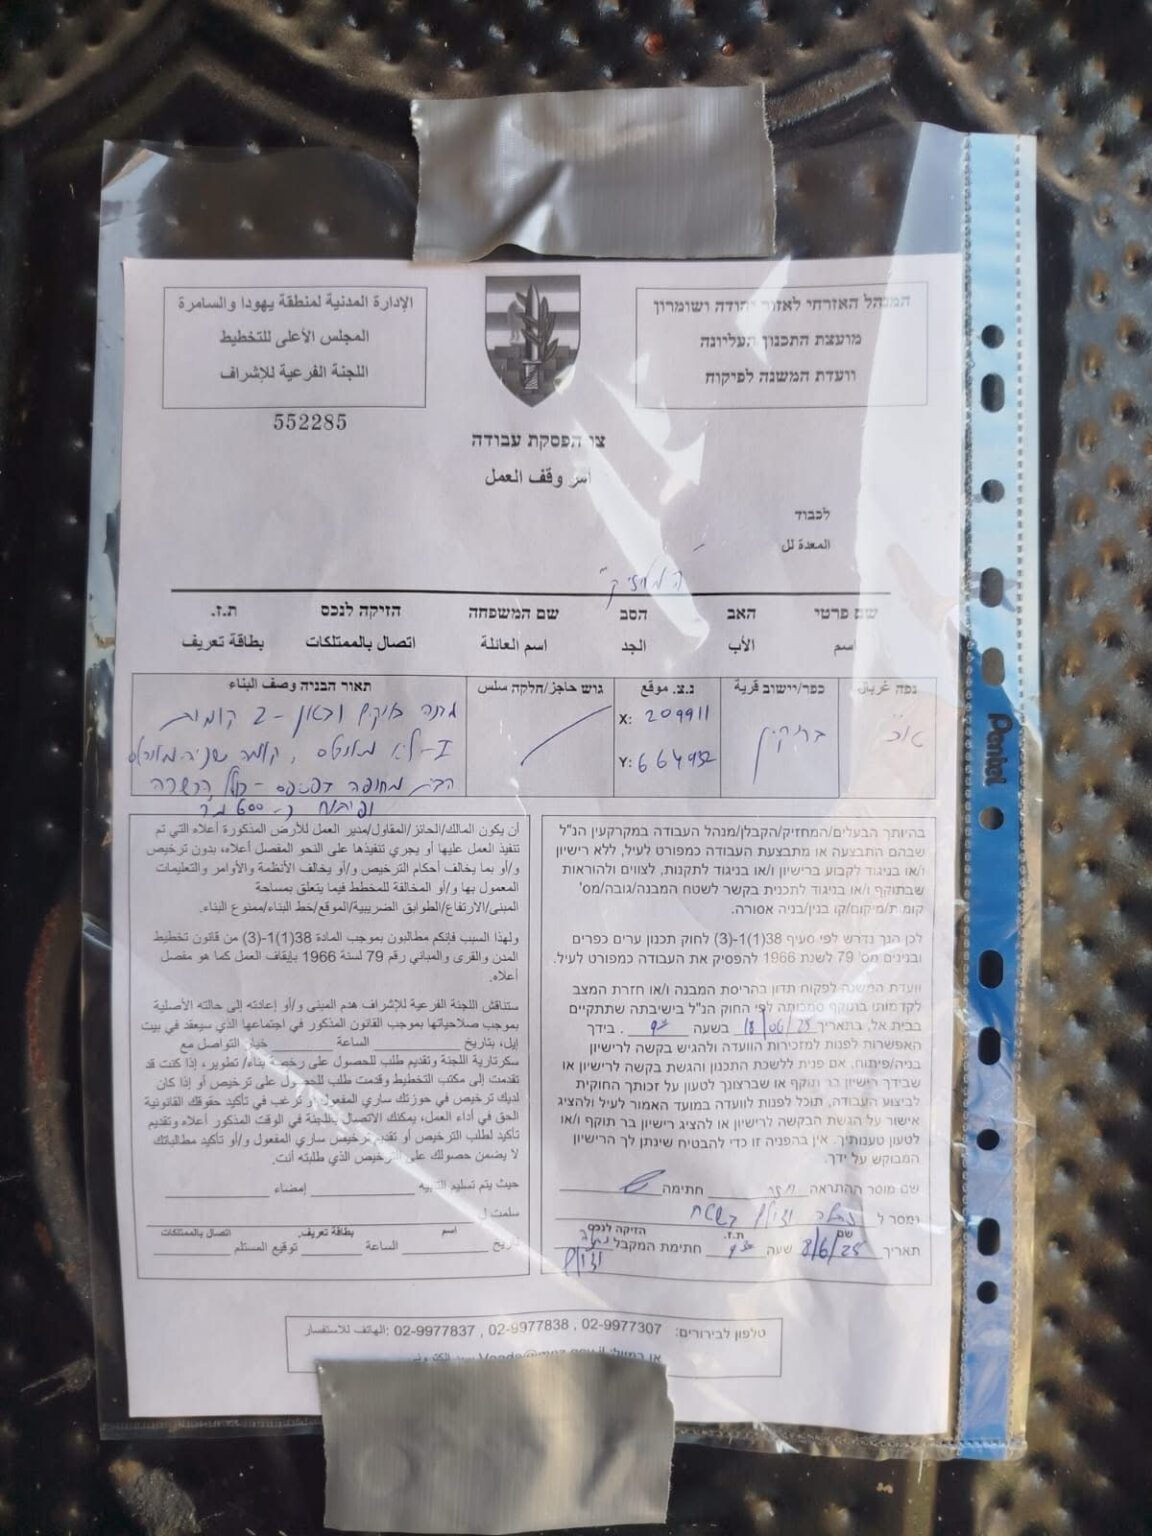 המנהל האזרחי לאזור יהודה ושומרון
מועצת התכנון העליונה
וועדת המשנה לפיקוח
الإدارة المدنية لمنطقة يهودا والسامرة
المجلس الأعلى للتخطيط
اللجنة الفرعية للإشراف
552285
צו הפסקת עבודה
أمر وقف العمل
לכבוד
المعدة لل
המחזיק
שם פרטי האב הסב שם המשפחה הזיקה לנכס ת.ז.
اسم الأب الجد اسم العائلة اتصال بالممتلكات بطاقة تعريف
נפה כפר/יישוב قرية נ.צ. מוקע גוש حاجز/חלקה תאור הבניה وصف البناء
ברוקין
X: 209911
Y: 664932
2 קומות
בהיותך הבעלים/המחזיק/הקבלן/מנהל העבודה במקרקעין הנ"ל
שבהם התבצעה או מתבצעת העבודה כמפורט לעיל, ללא רישיון
ו/או בניגוד לקבוע ברישיון ו/או בניגוד לתקנות, לצווים ולהוראות
שבתוקף ו/או בניגוד לתכנית בקשר לשטח המבנה/גובה/מס'
קומות/מיקום/קו בנין/בניה אסורה.
לכן הנך נדרש לפי סעיף 38(1)-(3) לחוק תכנון ערים כפרים
ובנינים מס' 79 לשנת 1966 להפסיק את העבודה כמפורט לעיל.
וועדת המשנה לפקוח תדון בהריסת המבנה ו/או חזרת המצב
לקדמותו בתוקף סמכותה לפי החוק הנ"ל בישיבתה שתתקיים
בבית אל, בתאריך 18/06/25 בשעה . בידך
האפשרות לפנות למזכירות הוועדה ולהגיש בקשה לרישיון
בניה/פיתוח. אם פנית ללשכת התכנון והגשת בקשה לרישיון או
שבידך רישיון בר תוקף או שברצונך לטעון על זכותך החוקית
לביצוע העבודה, תוכל לפנות לוועדה במועד האמור לעיל ולהציג
אישור על הגשת הבקשה לרישיון או להציג רישיון בר תוקף ו/או
לטעון טענותיך. אין בהפניה זו כדי להבטיח שינתן לך הרישיון
המבוקש על ידך.
שם מוסר ההתראה חתימה
נמסר ל
שם ת.ז. הזיקה לנכס
תאריך 8/6/25 שעה חתימת המקבל
أن يكون المالك/الحائز/المقاول/مدير العمل للأرض المذكورة أعلاه التي تم
تنفيذ العمل عليها أو يجري تنفيذها على النحو المفصل أعلاه، بدون ترخيص
و/أو بما يخالف أحكام الترخيص و/أو يخالف الأنظمة والأوامر والتعليمات
المعمول بها و/أو المخالفة للمخطط فيما يتعلق بمساحة
المبنى/الارتفاع/الطوابق الضريبية/الموقع/خط البناء/ممنوع البناء.
ولهذا السبب فإنكم مطالبون بموجب المادة 38(1)-(3) من قانون تخطيط
المدن والقرى والمباني رقم 79 لسنة 1966 بإيقاف العمل كما هو مفصل
أعلاه.
ستناقش اللجنة الفرعية للإشراف هدم المبنى و/أو إعادته إلى حالته الأصلية
بموجب صلاحياتها بموجب القانون المذكور في اجتماعها الذي سيعقد في بيت
إيل، بتاريخ الساعة خيار التواصل مع
سكرتارية اللجنة وتقديم طلب للحصول على رخصة بناء/ تطوير، إذا كنت قد
تقدمت إلى مكتب التخطيط وقدمت طلب للحصول على ترخيص أو إذا كان
لديك ترخيص في حوزتك ساري المفعول أو ترغب في تأكيد حقوقك القانونية
الحق في أداء العمل، يمكنك الاتصال باللجنة في الوقت المذكور أعلاه وتقديم
تأكيد لطلب الترخيص أو تقديم ترخيص ساري المفعول و/أو تأكيد مطالباتك
لا يضمن حصولك على الترخيص الذي طلبته أنت.
حيث يتم تسليم التنبيه إمضاء
سلمت ل
اسم بطاقة تعريف. اتصال بالممتلكات
تاريخ الساعة توقيع المستلم
טלפון לבירורים: 02-9977307 , 02-9977838 , 02-9977837 الهاتف للاستفسار:
או במייל:
Pentel